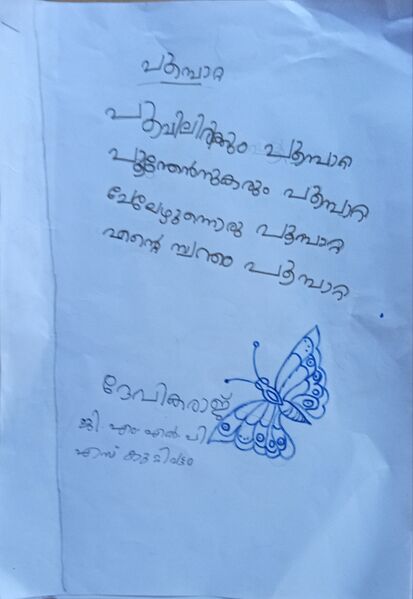 പൂമ്പാറ്റ
പൂവിലിരിക്കും പൂമ്പാറ്റ
പൂന്തേൻനുകരും പൂമ്പാറ്റ
ചേലേഴുന്നൊരു പൂമ്പാറ്റ
എന്റെ സ്വന്തം പൂമ്പാറ്റ
ദേവികരാജ്
ജി എം എൽ പി
എസ്